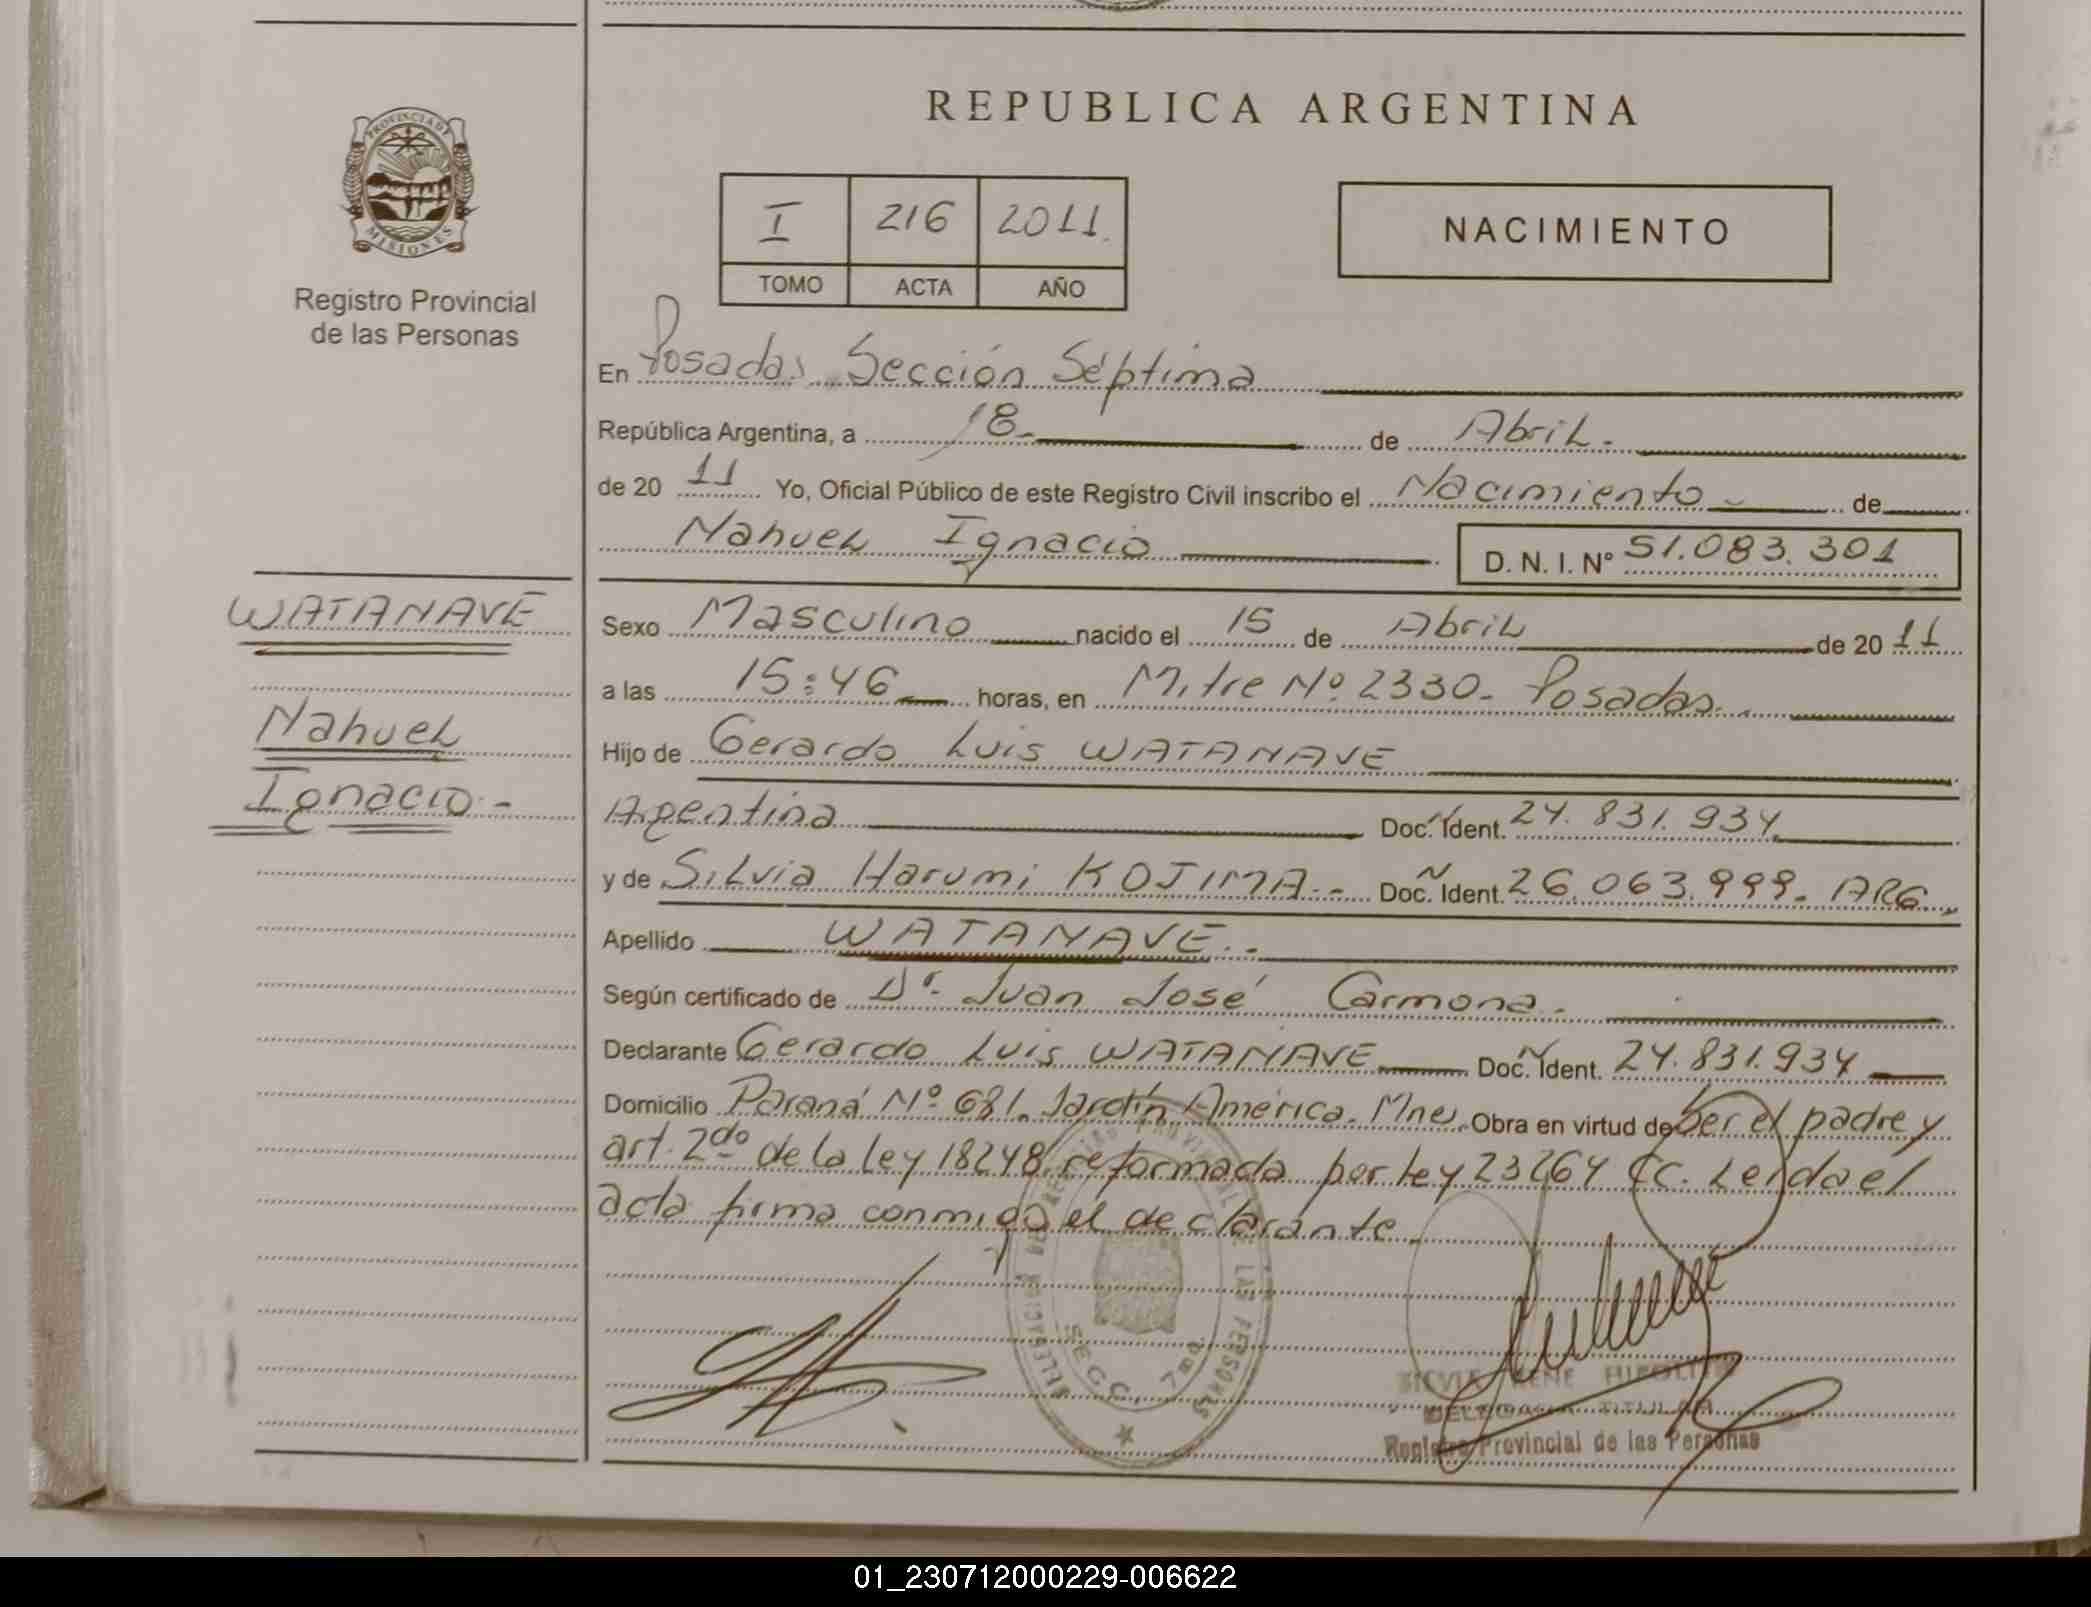 PROVINCIA DE
MISIONES
Registro Provincial
de las Personas
WATANAVE
Nahuel
Ignacio.-
REPUBLICA ARGENTINA
I 216 2011.
TOMO ACTA AÑO
NACIMIENTO
En Posadas Sección Séptima
República Argentina, a 18- de Abril.
de 20 11 Yo, Oficial Público de este Registro Civil inscribo el Nacimiento de
Nahuel Ignacio D. N. I. Nº 51.083.301
Sexo Masculino nacido el 15 de Abril de 20 11
a las 15:46 horas, en Mitre Nº 2330- Posadas.
Hijo de Gerardo Luis WATANAVE
Argentina Doc. Ident. 24.831.934
y de Silvia Harumi KOJIMA.- Doc. Ident. 26.063.999. ARG.
Apellido WATANAVE.-
Según certificado de Dr. Juan José Carmona.
Declarante Gerardo Luis WATANAVE Doc. Ident. 24.831.934
Domicilio Paraná Nº 681. Jardín América. Mnes. Obra en virtud de Ser el padre y
art. 2do de la ley 18248 reformada por ley 23264 CC. Leida el
acta firma conmigo el declarante.
REGISTRO PROVINCIAL DE LAS PERSONAS
SECC. 7ma
SILVIA IRENE
DELEGADA TITULAR
Registro Provincial de las Personas
01_230712000229-006622